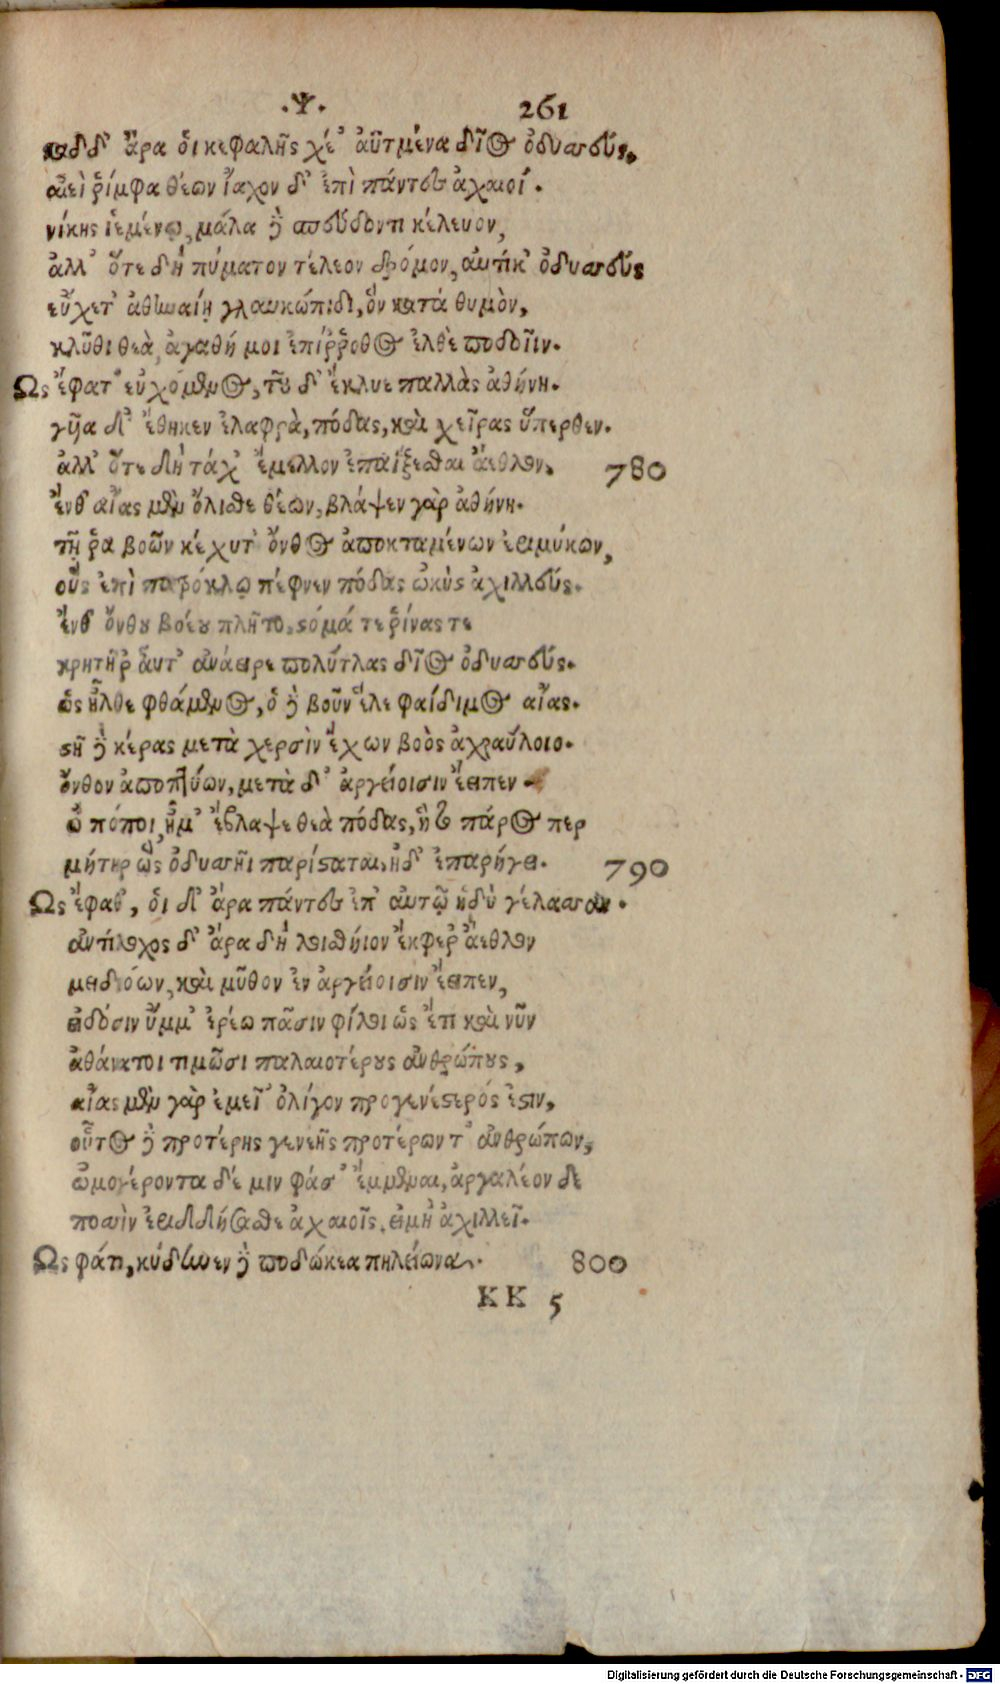 .Ψ. 261
καδδ' ἄρα ὁι κεφαλῆς χέ' ἀϋτμένα δῖος ὀδυσσεύς,
αἰεὶ ῥίμφα θέων ἴαχον δ' ἐπὶ πάντες ἀχαιοί.
νίκης ἱεμένῳ, μάλα δὲ σπεύδοντι κέλευον,
ἀλλ' ὅτε δὴ πύματον τέλεον δρόμον, αὐτίκ' ὀδυσσεὺς
εὔχετ' ἀθηναίῃ γλαυκώπιδι, ὃν κατὰ θυμὸν,
κλῦθι θεὰ, ἀγαθή μοι ἐπίῤῥοθος ἐλθὲ ποδοῖιν.
Ως ἔφατ' εὐχόμενος, τοῦ δ' ἔκλυε παλλὰς ἀθήνη.
γῦια δ' ἔθηκεν ἐλαφρὰ, πόδας, καὶ χεῖρας ὕπερθεν.
ἀλλ' ὅτε δὴ τάχ' ἔμελλον ἐπαΐξεσθαι ἄεθλον, 780
ἔνθ' αἴας μὲν ὄλισθε θέων, βλάψεν γὰρ ἀθήνη.
τῇ ῥα βοῶν κέχυτ' ὄνθος ἀποκταμένων ἐριμύκων,
οὓς ἐπὶ πατρόκλῳ πέφνεν πόδας ὠκὺς ἀχιλλεύς.
ἔνθ' ὄνθου βοέου πλῆτο, στόμά τε ῥίνας τε
κρητῆρ' ἆυτ' ἀνάειρε πολύτλας δῖος ὀδυσσεύς.
ὡς ἦλθε φθάμενος, ὁ δὲ βοῦν ἕλε φαίδιμος αἴας.
στῆ δὲ κέρας μετὰ χερσὶν ἔχων βοὸς ἀγραύλοιο.
ὄνθον ἀποπτύων, μετὰ δ' ἀργείοισιν ἔειπεν
ὦ πόποι, ἦ μ' ἔβλαψε θεὰ πόδας, ἣ τὸ πάρος περ
μήτηρ ὣς ὀδυσσῆι παρίσταται, ἠδ' ἐπαρήγει. 790
Ως ἔφαθ', ὁι δ' ἄρα πάντες ἐπ' αὐτῷ ἡδὺ γέλασσαν.
ἀντίλοχος δ' ἄρα δὴ λοισθήιον ἔκφερ' ἄεθλον
μειδιόων, καὶ μῦθον ἐν ἀργείοισιν ἔειπεν,
εἰδόσιν ὔμμ' ἐρέω πᾶσιν φίλοι ὡς ἔτι καὶ νῦν
ἀθάνατοι τιμῶσι παλαιοτέρους ἀνθρώπους,
αἴας μὲν γὰρ ἐμεῖ' ὀλίγον προγενέστερός ἐστιν,
οὗτος δὲ προτέρης γενεῆς προτέρων τ' ἀνθρώπων,
ὠμογέροντα δέ μιν φάσ' ἔμμεναι, ἀργαλέον δὲ
ποσὶν ἐριδδήσασθε ἀχαιοῖς, εἰ μὴ ἀχιλλεῖ.
Ως φάτο, κύδηνεν δὲ ποδώκεα πηλείωνα. 800
KK 5
Digitalisierung gefördert durch die Deutsche Forschungsgemeinschaft - DFG